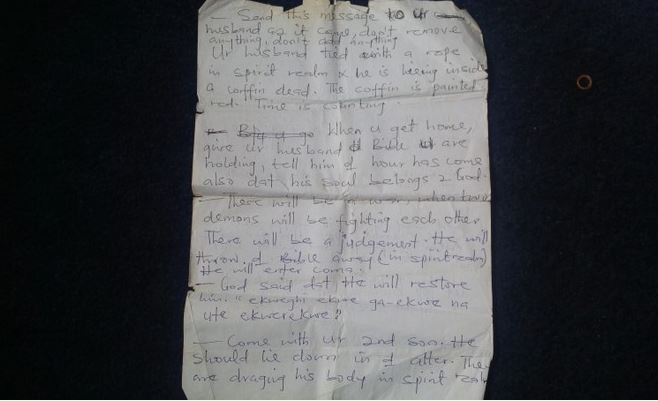 — Send this message to ur
husband as it came, don't remove
anything, don't add anything
Ur husband tied with a rope
in spirit realm & he is being inside
a coffin dead. The coffin is painted
red. Time is counting.
When u get home,
give ur husband d Bible u are
holding, tell him d hour has come
also dat his soul belongs 2 God.
— There will be a war, when two
demons will be fighting each other
There will be a judgement. He will
throw d Bible away (in spirit realm)
He will enter coma.
— God said dat He will restore
him. "ekweghi ekwe ga-ekwe na
ute ekwerekwe"
— Come with ur 2nd son. He
should lie down in d alter. They
are draging his body in spirit realm